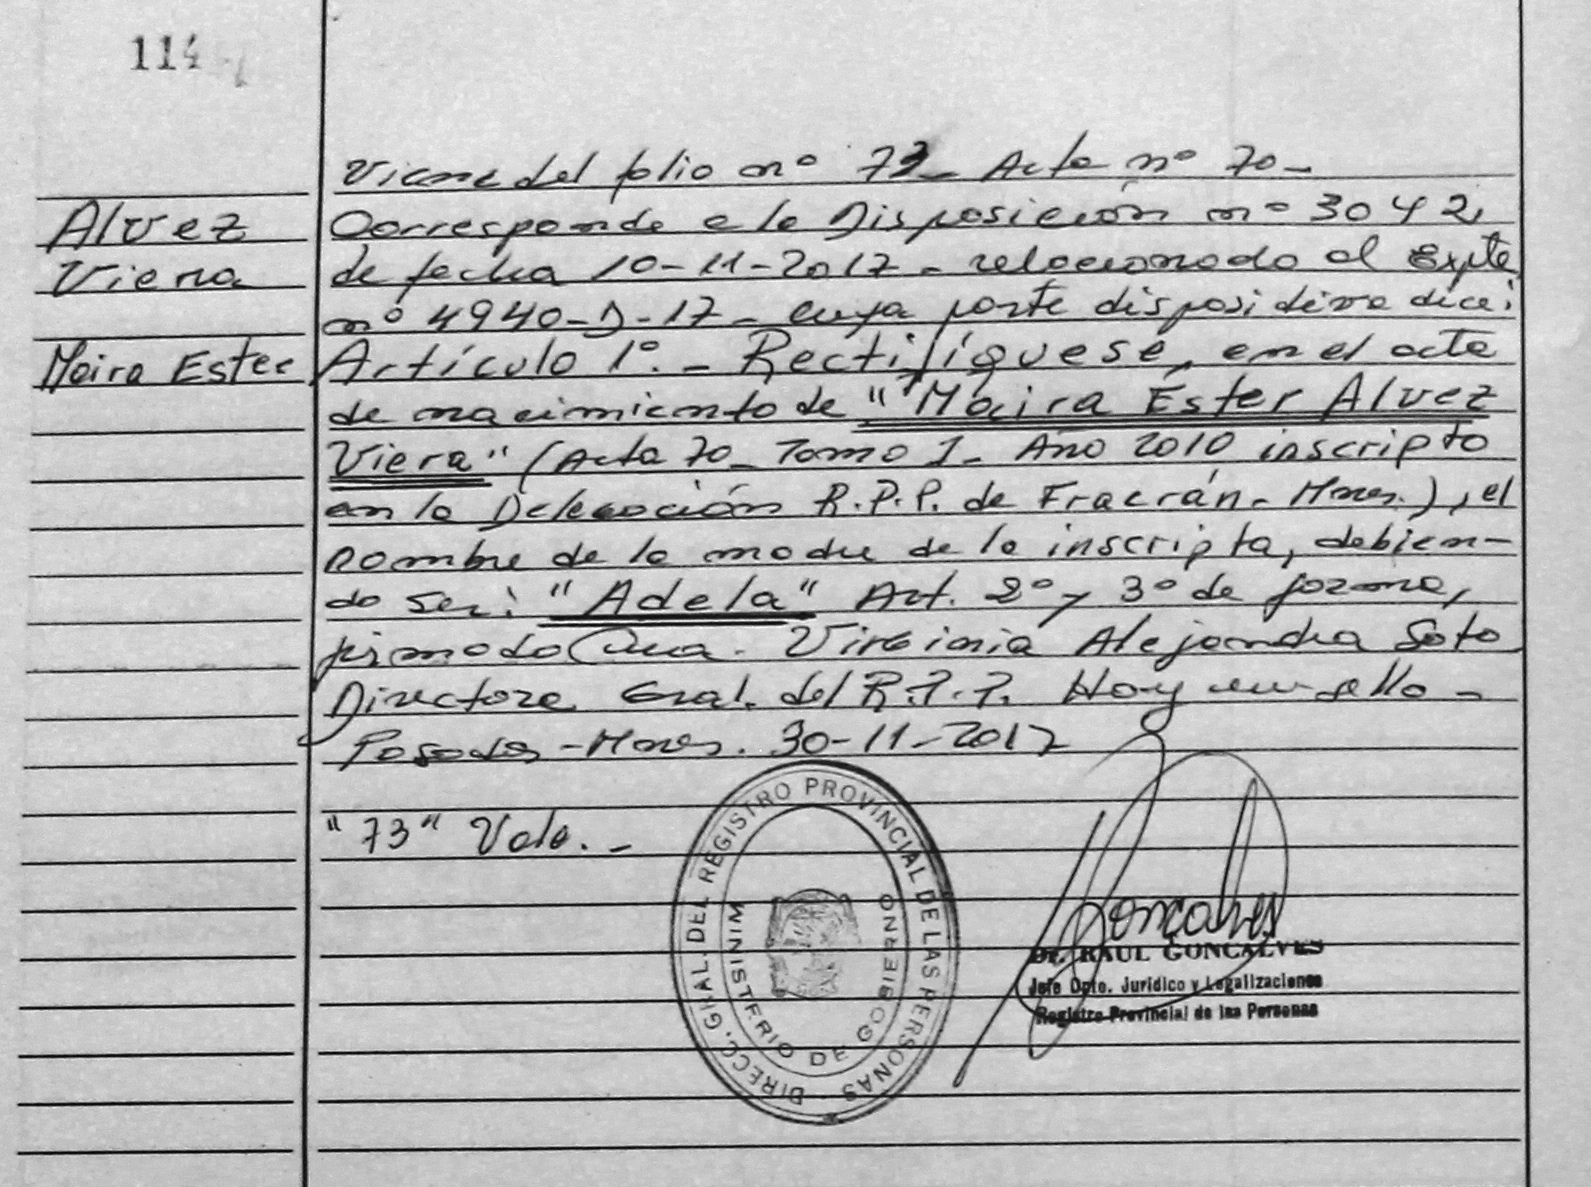 114
Viene del folio nº 73_ Acta nº 70_
Alvez
Viera
Maira Ester
Corresponde a la Disposición nº 3042,
de fecha 10-11-2017_ relacionado al Expte
nº 4940-D-17_ cuya parte dispositiva dice:
Artículo 1º._ Rectifíquese, en el acta
de nacimiento de "Maira Ester Alvez
Viera" (Acta 70_ Tomo I_ Año 2010 inscripto
en la Delegación R.P.P. de Fracrán_ Mnes.), el
nombre de la madre de la inscripta, debien-
do ser: "Adela" Art. 2º y 3º de forma,
firmado Virginia Alejandra Soto
Directora Gral. del R.P.P. Hay un sello_
Posadas-Mnes. 30-11-2017
"73" Vale._
DIRECC. GRAL. DEL REGISTRO PROVINCIAL DE LAS PERSONAS
MINISTERIO DE GOBIERNO
Goncalves
Dr. RAUL GONCALVES
Jefe Dpto. Jurídico y Legalizaciones
Registro Provincial de las Personas